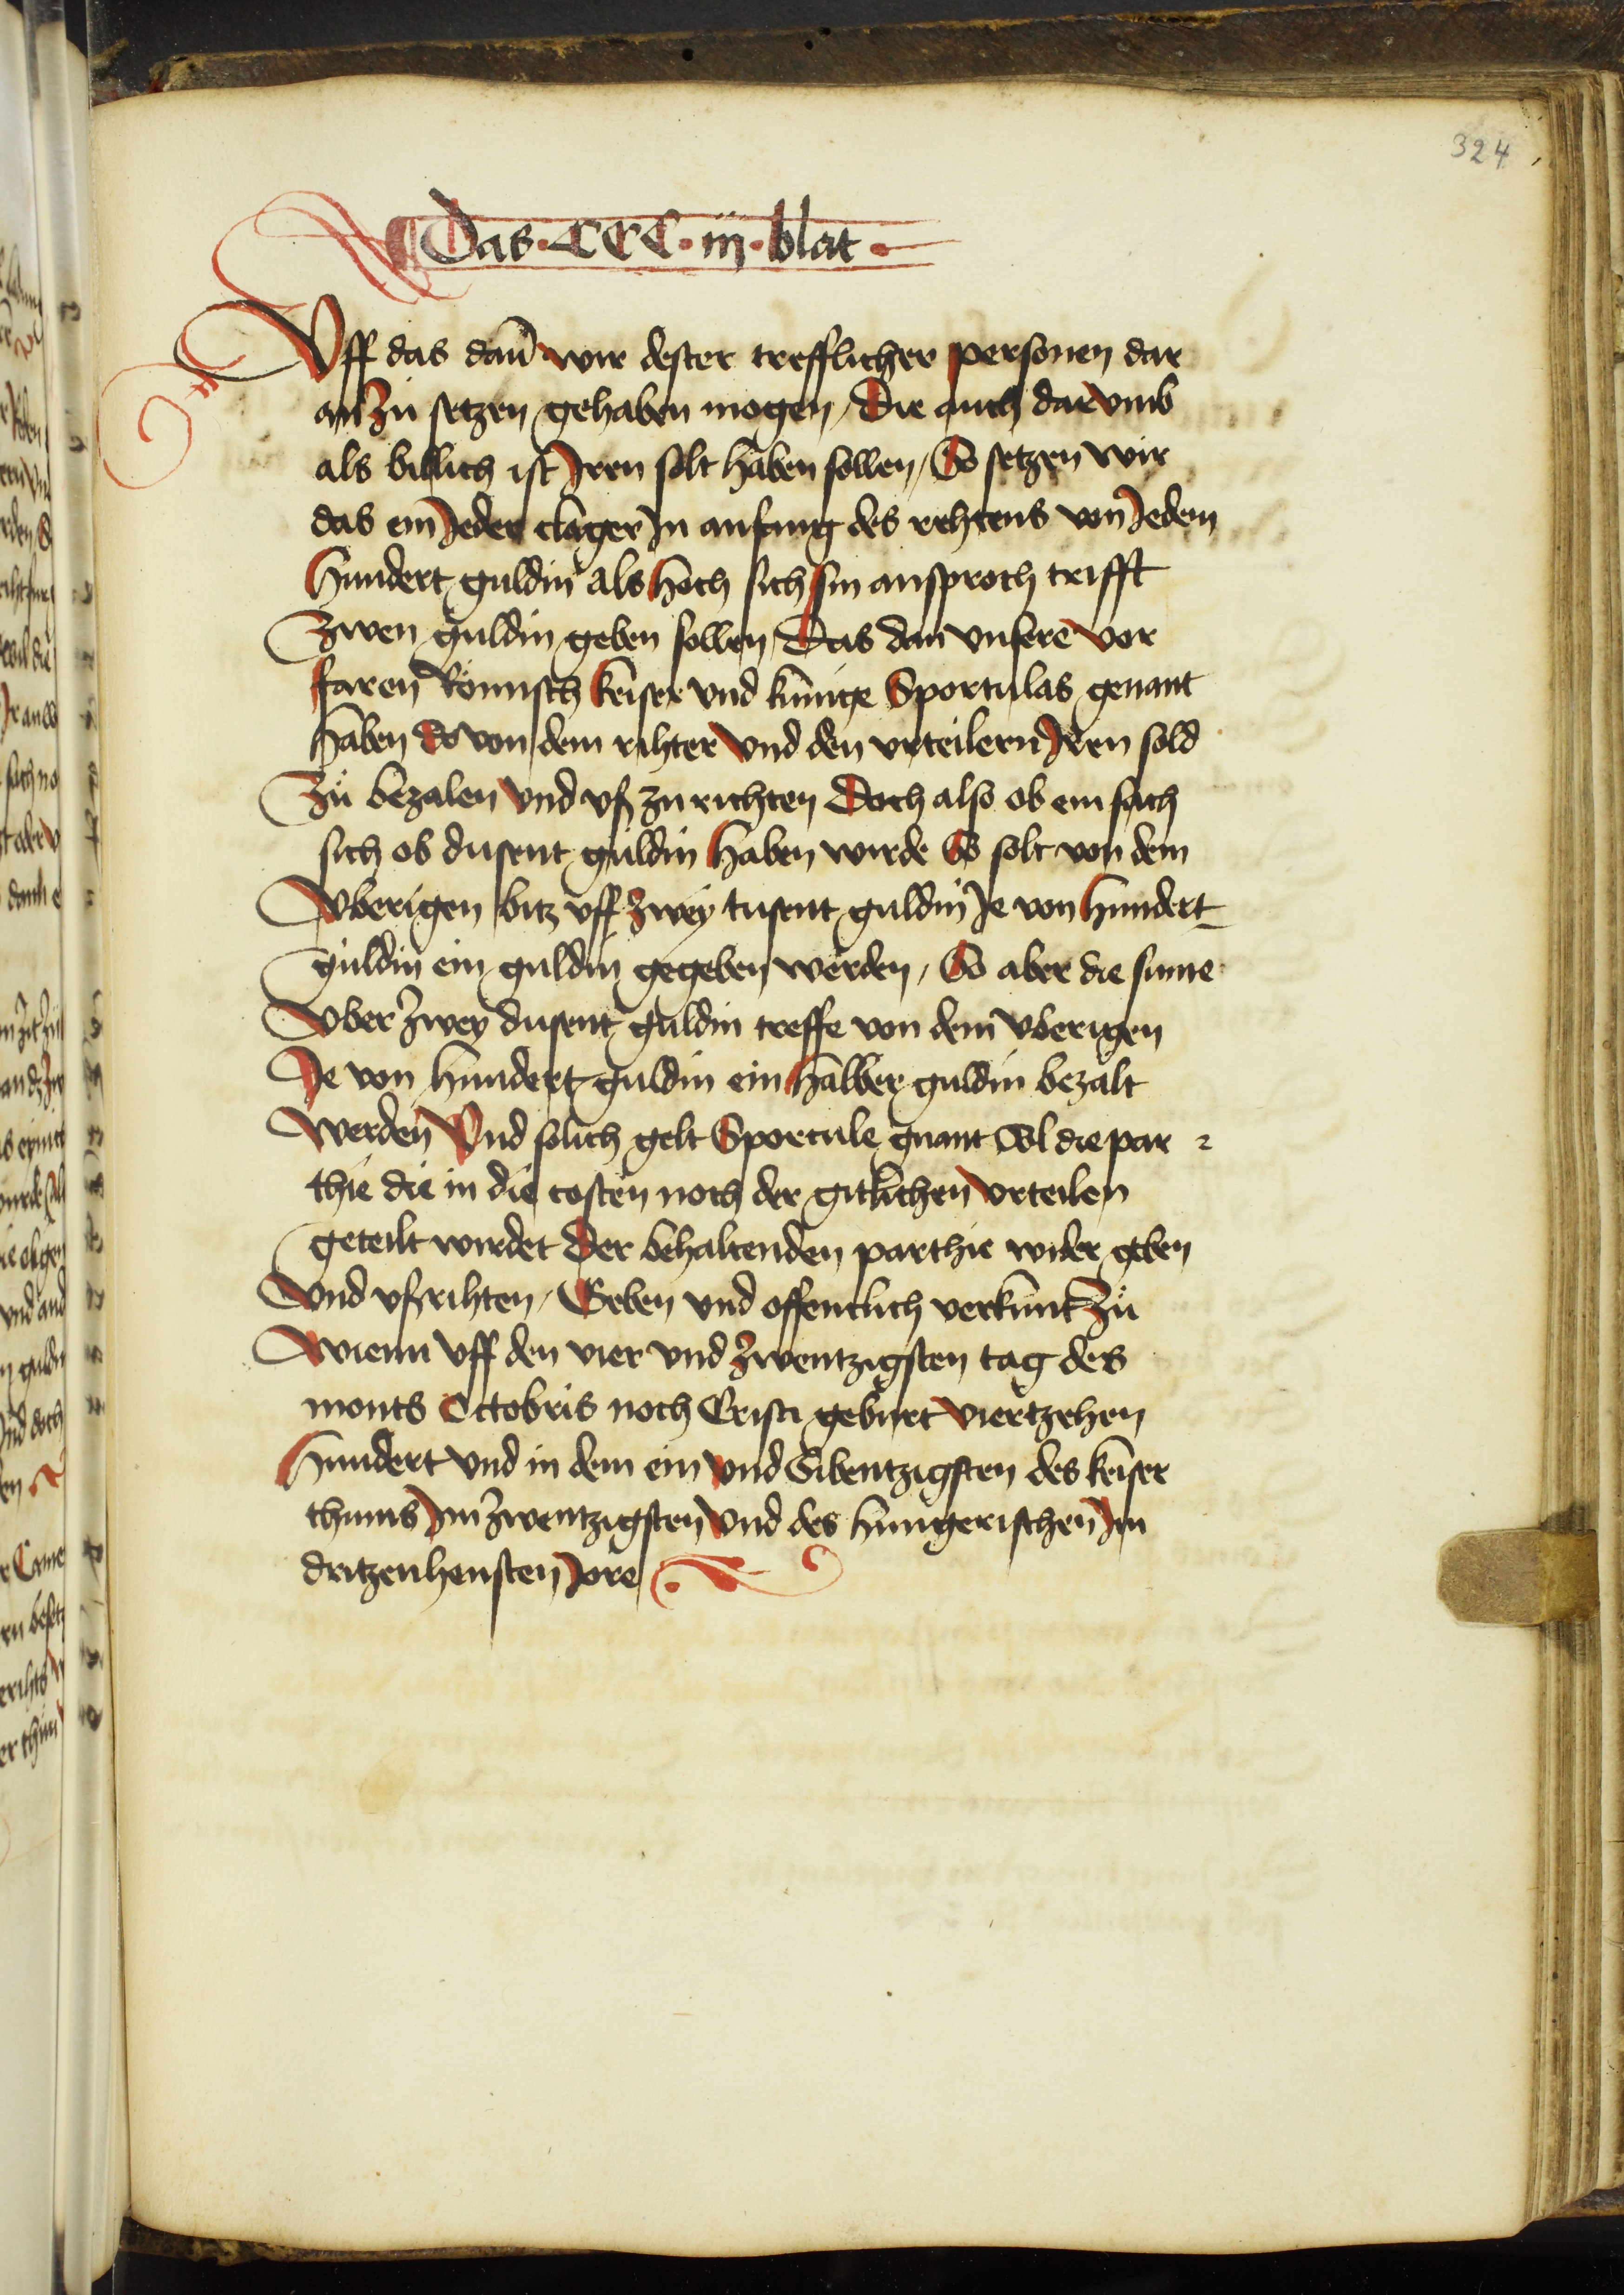 324
Das · CCC · iij · blat ·
Vff das dan̄ wir dester trefflicher personen dar
an zü setzen gehaben mogen / Die auch dar vmb
als billich ist Iren solt haben sollen / So setzen wir
das ein Jeder clager In anfang des rehtens von Jedem
hundert guldin als hoch sich sin ansproch trifft
Zwen guldin geben sollen Das dan vnsere vor
faren Römisch keiser vnd künige Sportulas genant
haben Do von dem rihter vnd den vrteilern Iren sold
Zü bezalen vnd vß zu richten Doch also ob ein sach
sich ob dusent guldin haben wirde So solt von dem
Vberigen bitz vff zwey tusent guldin Je von hundert
guldin ein guldin gegeben werden / So aber die sume
Vber zwey dusent guldin treffe von dem vberigen
Je von hundert guldin ein halber guldin bezalt
werden Vnd solich gelt Sportule gnant Sol die par
thie die in die costen noch der gitlichen vrteilen
geteilt wirdet Der behaltenden parthie wider geben
Vnd vßrihten / Geben vnd offentlich verkünt zü
Wienn vff den vier vnd zwentzigsten tag des
monts Octobris noch Cristi gebürt viertzehen
hundert vnd in dem ein vnd Sibentzigsten des keiser
thums Im zwentzigsten vnd des hungerischen Im
dritzenhensten Jore